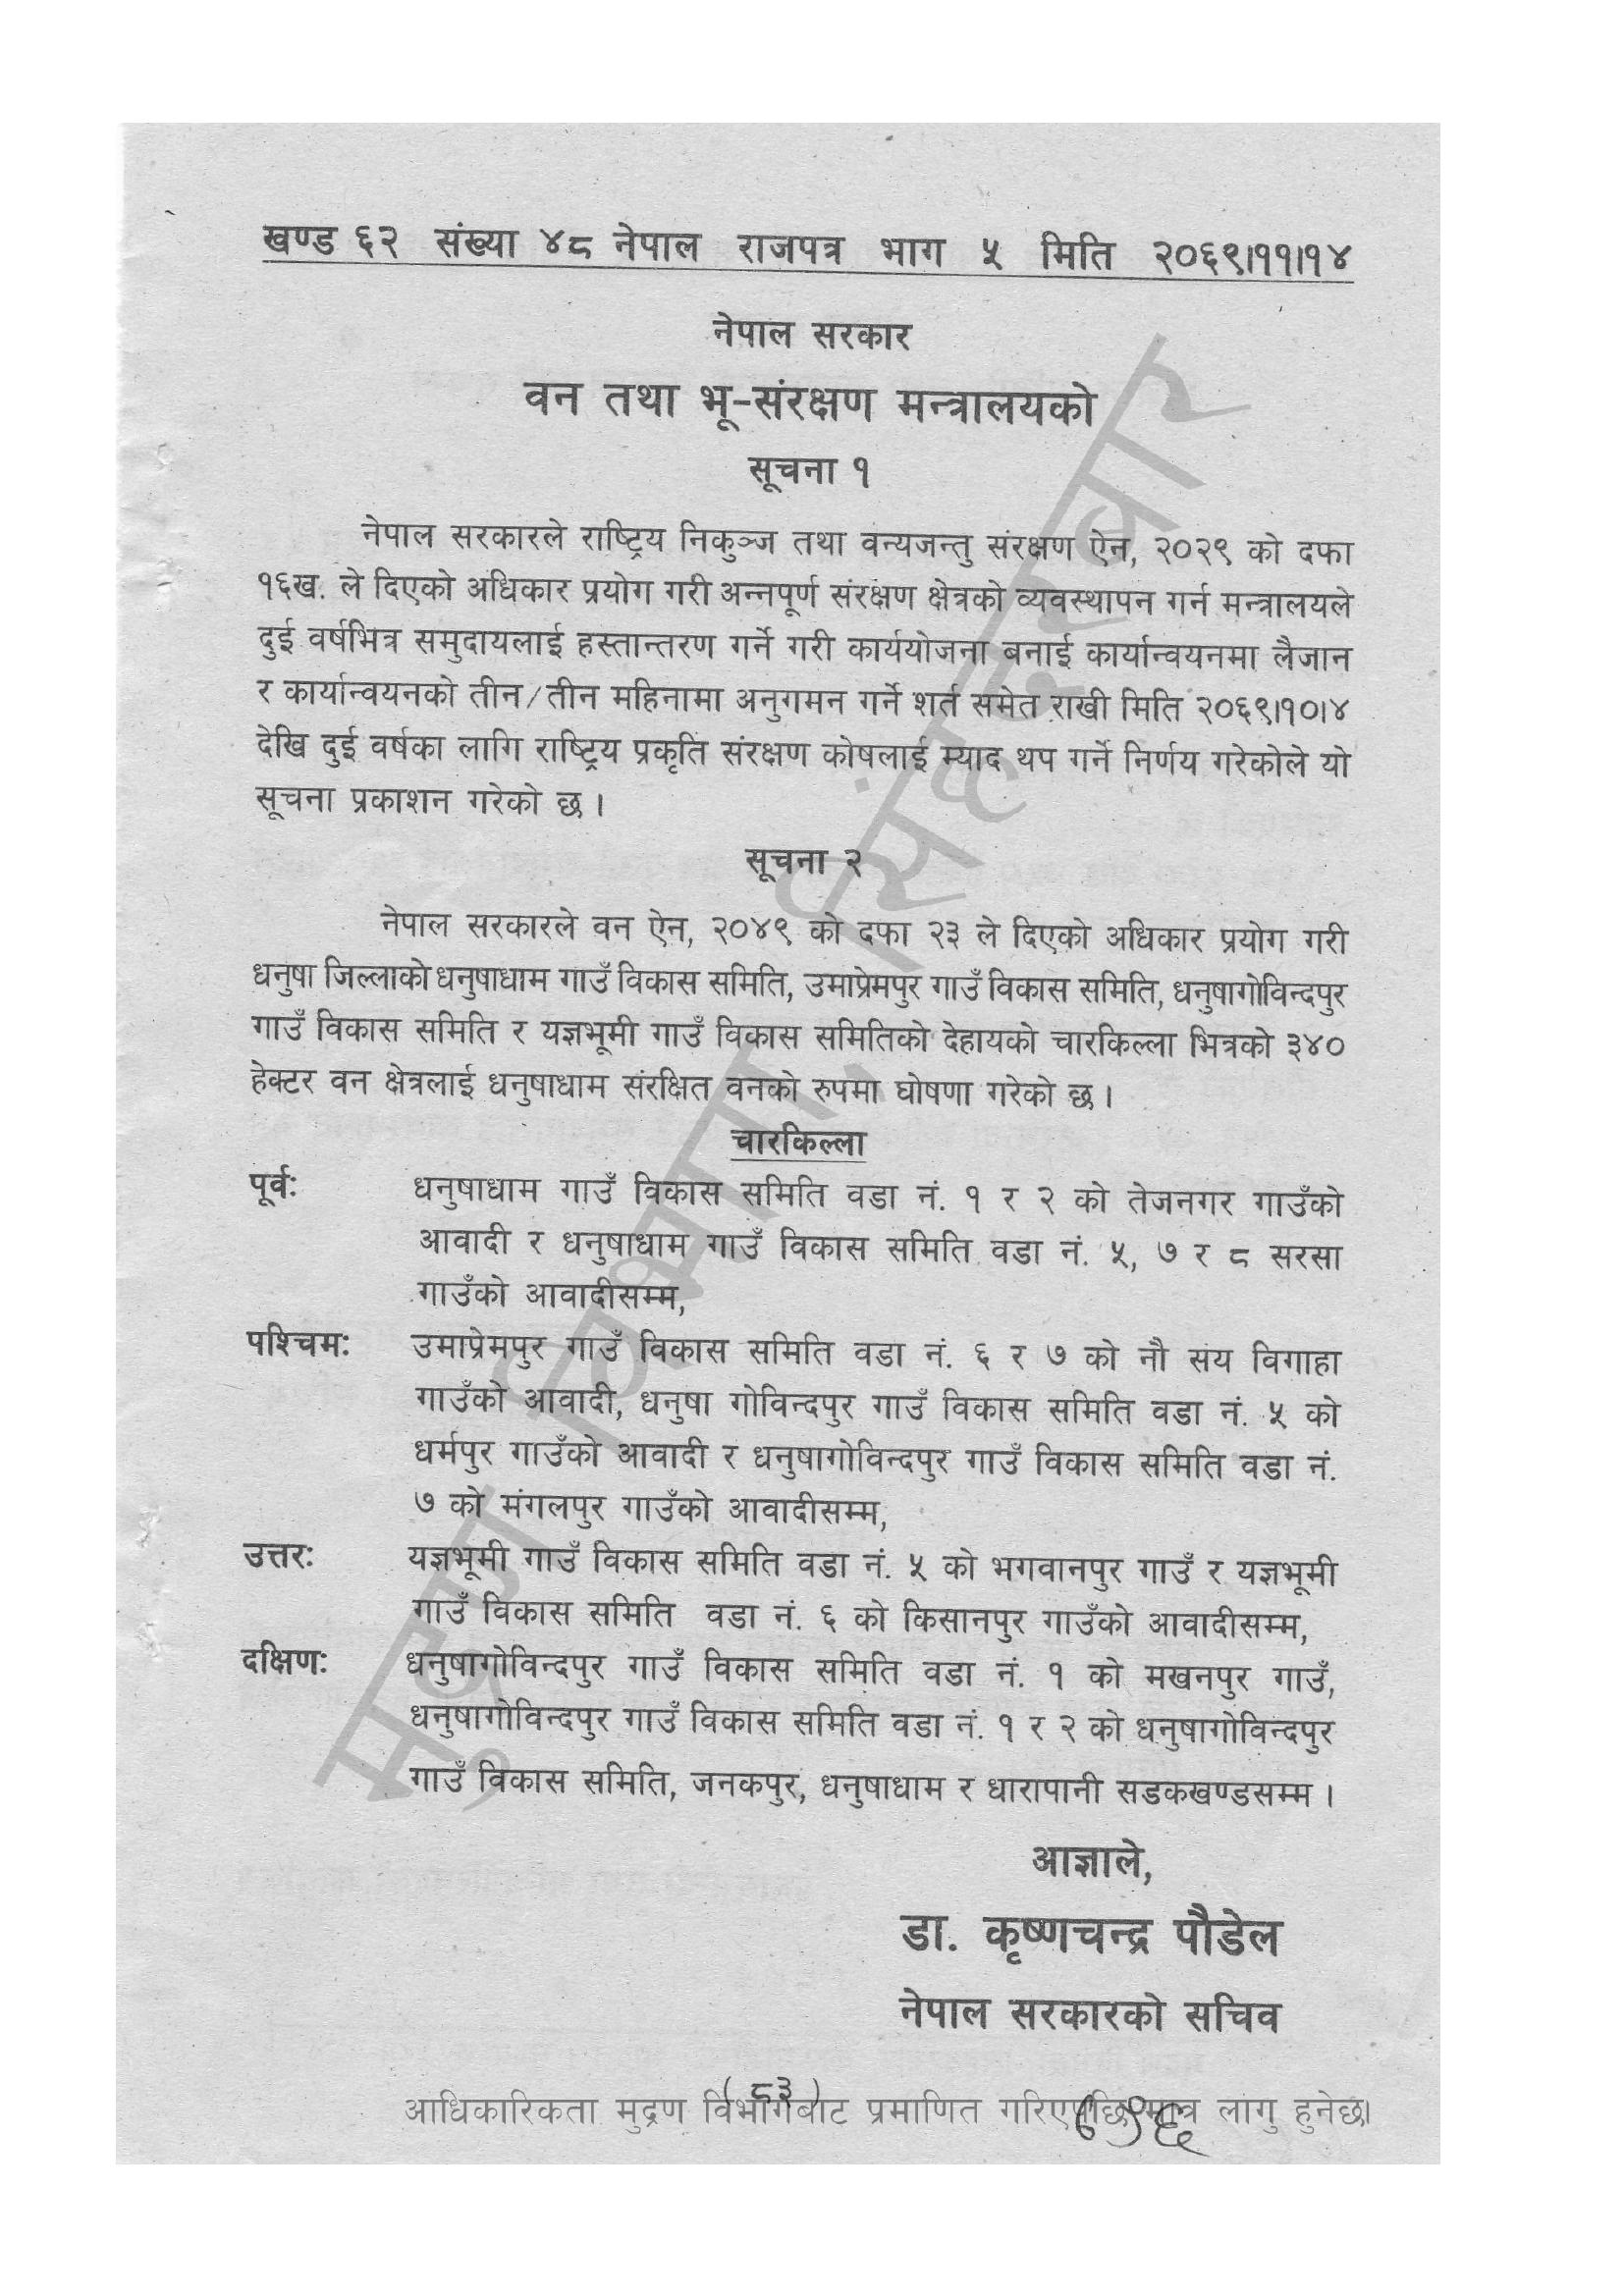 खण्ड ६२ संख्या ४८ नेपाल राजपत्र भाग ५ मिति २०६९।११।१४
नेपाल सरकार
वन तथा भू-संरक्षण मन्त्रालयको
सूचना १
नेपाल सरकारले राष्ट्रिय निकुञ्ज तथा वन्यजन्तु संरक्षण ऐन, २०२९ को दफा
१६ख. ले दिएको अधिकार प्रयोग गरी अन्नपूर्ण संरक्षण क्षेत्रको व्यवस्थापन गर्न मन्त्रालयले
दुई वर्षभित्र समुदायलाई हस्तान्तरण गर्ने गरी कार्ययोजना बनाई कार्यान्वयनमा लैजान
र कार्यान्वयनको तीन/तीन महिनामा अनुगमन गर्ने शर्त समेत राखी मिति २०६९।१०।४
देखि दुई वर्षका लागि राष्ट्रिय प्रकृति संरक्षण कोषलाई म्याद थप गर्ने निर्णय गरेकोले यो
सूचना प्रकाशन गरेको छ ।
सूचना २
नेपाल सरकारले वन ऐन, २०४९ को दफा २३ ले दिएको अधिकार प्रयोग गरी
धनुषा जिल्लाको धनुषाधाम गाउँ विकास समिति, उमाप्रेमपुर गाउँ विकास समिति, धनुषागोविन्दपुर
गाउँ विकास समिति र यज्ञभूमी गाउँ विकास समितिको देहायको चारकिल्ला भित्रको ३४०
हेक्टर वन क्षेत्रलाई धनुषाधाम संरक्षित वनको रुपमा घोषणा गरेको छ ।
चारकिल्ला
पूर्व: धनुषाधाम गाउँ विकास समिति वडा नं. १ र २ को तेजनगर गाउँको
आवादी र धनुषाधाम गाउँ विकास समिति वडा नं. ५, ७ र ८ सरसा
गाउँको आवादीसम्म,
पश्चिम: उमाप्रेमपुर गाउँ विकास समिति वडा नं. ६ र ७ को नौ सय विगाहा
गाउँको आवादी, धनुषा गोविन्दपुर गाउँ विकास समिति वडा नं. ५ को
धर्मपुर गाउँको आवादी र धनुषागोविन्दपुर गाउँ विकास समिति वडा नं.
७ को मंगलपुर गाउँको आवादीसम्म,
उत्तर: यज्ञभूमी गाउँ विकास समिति वडा नं. ५ को भगवानपुर गाउँ र यज्ञभूमी
गाउँ विकास समिति वडा नं. ६ को किसानपुर गाउँको आवादीसम्म,
दक्षिण: धनुषागोविन्दपुर गाउँ विकास समिति वडा नं. १ को मखनपुर गाउँ,
धनुषागोविन्दपुर गाउँ विकास समिति वडा नं. १ र २ को धनुषागोविन्दपुर
गाउँ विकास समिति, जनकपुर, धनुषाधाम र धारापानी सडकखण्डसम्म ।
आज्ञाले,
डा. कृष्णचन्द्र पौडेल
नेपाल सरकारको सचिव
(८३)
आधिकारिकता मुद्रण विभागबाट प्रमाणित गरिएपछि मात्र लागु हुनेछ।
मुद्रण विभाग, सिंहदरबार